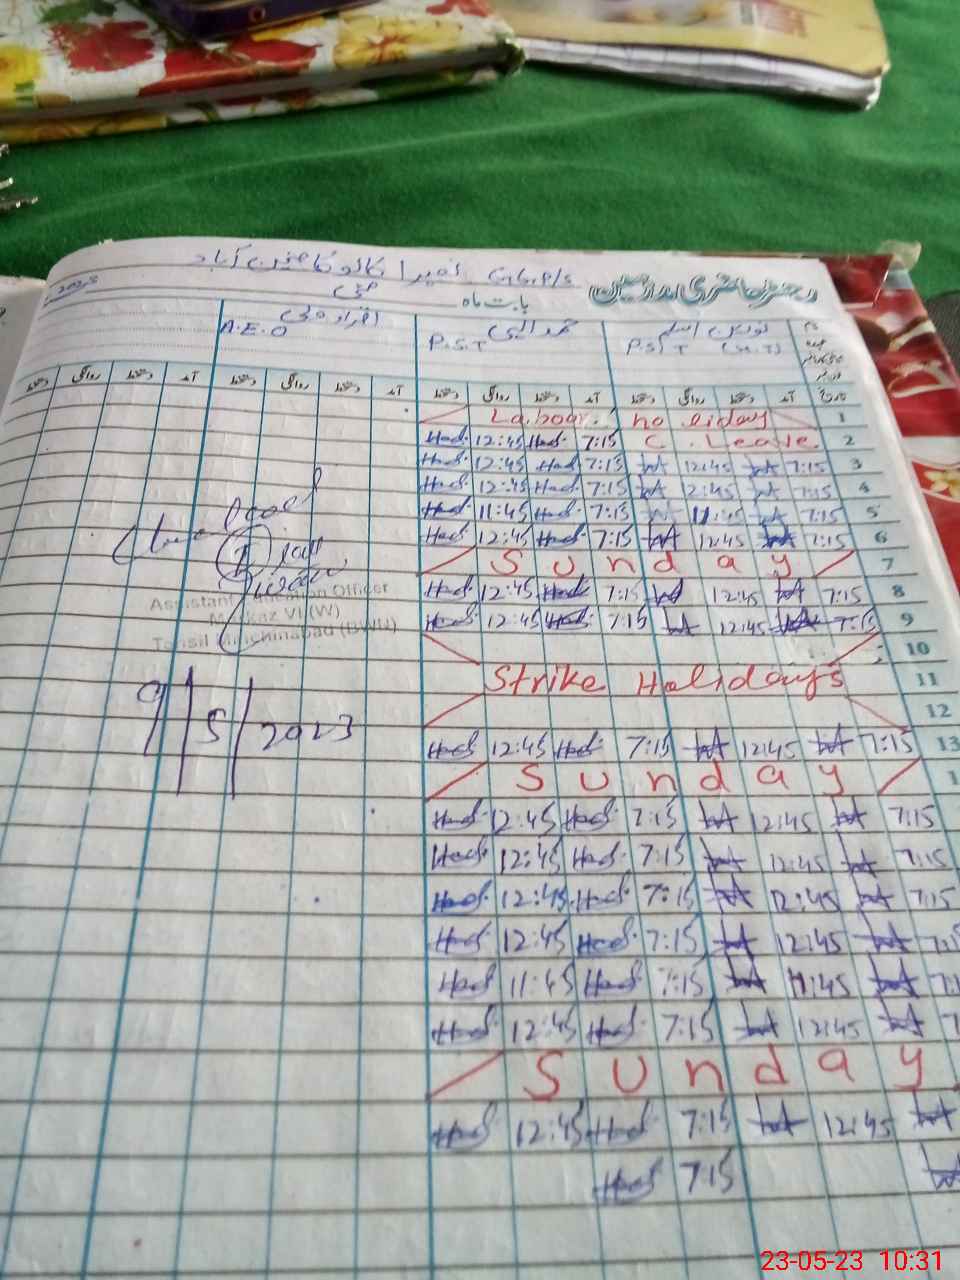 G.G.P/S
رجسٹر حاضری مدرسین بابت ماہ مئی 2023
P.S.T P.S.T (H.T)
A.E.O
تاریخ آمد دستخط روانگی دستخط آمد دستخط روانگی دستخط آمد دستخط روانگی دستخط آمد دستخط روانگی دستخط
Labour holiday 1
Had. 12:45 Had. 7:15 C. Leave. 2
Had. 12:45 Had 7:15 12:45 7:15 3
Had. 12:45 Had. 7:15 12:45 7:15 4
Had. 11:45 Had. 7:15 11:45 7:15 5
Had. 12:45 Had. 7:15 12:45 7:15 6
Sunday 7
Had. 12:45 Had. 7:15 12:45 7:15 8
Had. 12:45 Had. 7:15 12:45 7:15 9
10
Strike Holidays 11
12
Had. 12:45 Had. 7:15 12:45 7:15 13
Sunday 1
Had. 12:45 Had. 7:15 12:45 7:15
Had. 12:45 Had. 7:15 12:45 7:15
Had. 12:45 Had. 7:15 12:45 7:15
Had. 12:45 Had. 7:15 12:45
Had 11:45 Had 7:15 11:45
Had. 12:45 Had. 7:15 12:45
Sunday
Had. 12:45 Had. 7:15 12:45
Had 7:15
Assistant Education Officer
Markaz VI (W)
Tehsil Minchinabad (BWN)
9/5/2023
23-05-23 10:31